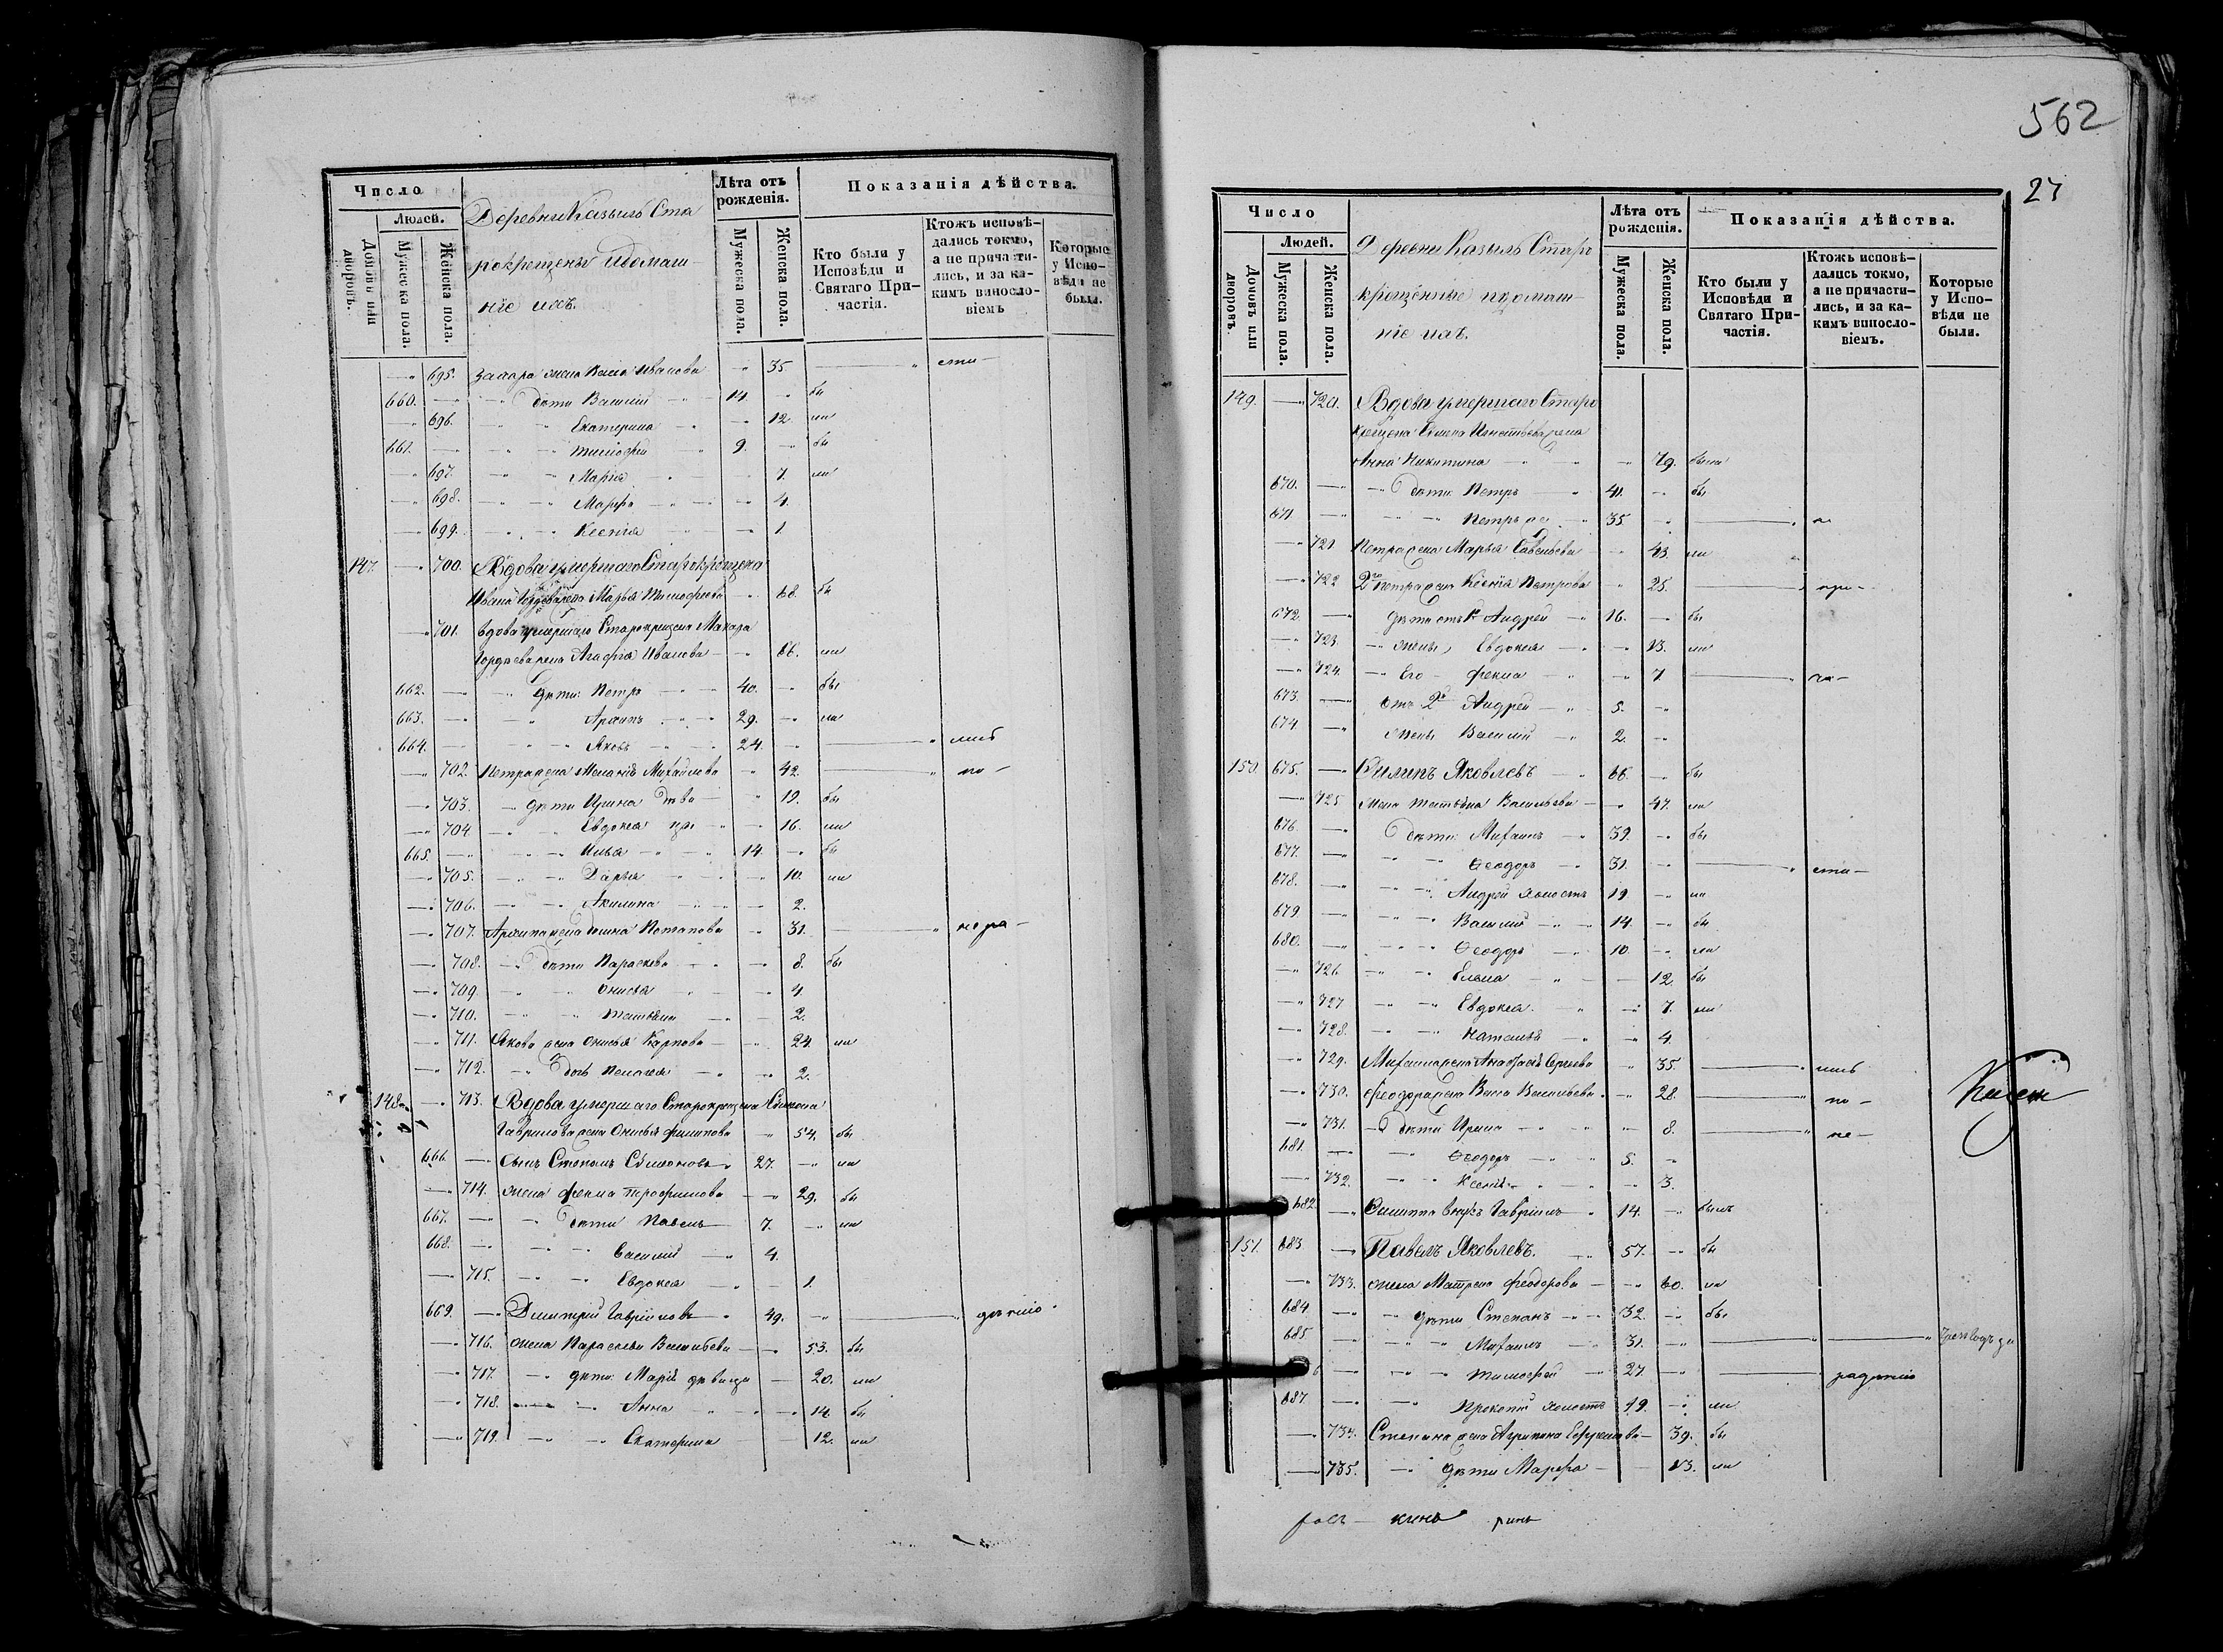 Число
Людей.
Домовъ или дворовъ.
Мужеска пола.
Женска пола.
Деревни Казыль Ста
рокрещены и домаш-
ніе ихъ.
Лѣта отъ рожденія.
Мужеска пола.
Женска пола.
Показанія дѣйства.
Кто были у Исповѣди и Святаго Причастія.
Ктожъ исповѣдались токмо, а не причастились, и за какимъ винословіемъ
Которые у Исповѣди не были.
695. Захара жена Иванова 35 сти-
660. дѣти Василій 14. бы
696. Екатерина 12. ли
661. Тимофей 9. бы
697. Марія 7. ли
698. Марфа 4.
699. Ксенія 1.
147. 700. Вдова умершаго Старокрещена
Ивана жена Марья Тимофеева 68. бы
701. вдова умершаго Старокрещена Макара
Гордѣева жена Агафія Иванова 66. ли
662. дѣти: Петръ 40. бы
663. Архипъ 29. ли
664. Яковъ 24. лѣ
702. Петра жена Меланія Михайлова 42. но-
703. дѣти Ирина 19. бы
704 Евдокея 16. ли
665. Илья 14 бы
705. Дарья 10. ли
706. Акилина 2.
707. Архипа жена Потапова 31. нера-
708. дѣти Параскева 8. бы
709. Онисья 4.
710. Татьяна 2.
711. Якова жена Онисья Карпова 24. ли
712. дочь Пелагея 2.
148. 713. Вдова умершаго Старокрещена Симона
Гаврилова жена Онисья Филипова 54. бы
666. сынъ Степанъ Симоновъ 27. ли
714. жена Фекла Трофимова 29. бы
667. дѣти Павелъ 7. ли
668. Василій 4.
715. Евдокея 1.
669. Дмитрій Гавриловъ 49. дѣнію
716. жена Параскева Васильева 53. бы
717. дѣти: Марія дѣвица 20. ли
718. Анна 14 бы
719. Екатерина 12. ли
562
27
Число
Людей.
Домовъ или дворовъ.
Мужеска пола.
Женска пола.
Деревни Казыль Старо
крещенные и домаш-
ніе ихъ.
Лѣта отъ рожденія.
Мужеска пола.
Женска пола.
Показанія дѣйства.
Кто были у Исповѣди и Святаго Причастія.
Ктожъ исповѣдались токмо, а не причастились, и за какимъ винословіемъ.
Которые у Исповѣди не были.
149. 720. Вдова умершаго Старо
крещена жена
Анна Никитина 79. была
670. дѣти: Петръ 41. бы
671 Петръ 35.
721 Петра жена Марья Савельева 43. ли
722 2го Петра жена Ксенія Петрова 25. при-
672. дѣти отъ 1й Андрей 16. бы
723. жены, Евдокея 13. ли
724. Его Фекла 7 ча-
673. отъ 2й Андрей 5.
674. жены Василій 2.
150 675. Филипъ Яковлевъ 66. бы
725 жена Татьяна Васильева 47. ли
676. дѣти: Михаилъ 39. бы
677. Ѳеодоръ 31. сти-
678. Андрей холостъ 19 ли
679. Василій 14. бы
680. Ѳеодоръ 10. ли
726. Елена 12. бы
727 Евдокея 7. ли
728. Наталья 4.
729. Михаила жена Анастасія Сергеева 35. лись
730. Феодора жена Васса Васильева 28. по-
731. дѣти Ирина 8. не-
681. Ѳеодоръ 5.
732. Ксенія 3.
682. Филиппа внукъ Гавріилъ 14. былъ
151. 683. Павелъ Яковлевъ 57. бы
733. жена Матрена Феодорова 60. ли
684. дѣти Степанъ 32. бы
685 Михаилъ 31.
Тимофей 27. радѣнію
687. Прокопій холостъ 19. ли
734. Степана жена Агрипина Ефремова 39. бы
735. дѣти Марфа 13. ли